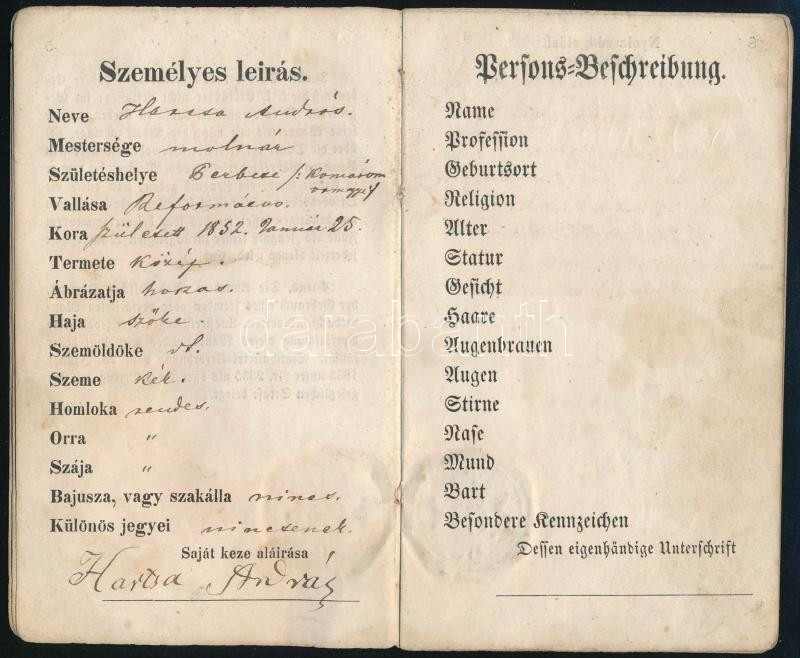 Személyes leirás.
Neve Harcsa András.
Mestersége molnár
Születéshelye Perbese /: Komárom
vármgye /
Vallása Reformácus.
Kora született 1852. Január 25.
Termete közép.
Ábrázatja hosas.
Haja szőke.
Szemöldöke dt.
Szeme kék.
Homloka rendes.
Orra "
Szája "
Bajusza, vagy szakálla nincs.
Különös jegyei nincsenek.
Saját keze aláirása
Harcsa András
Persons=Beschreibung.
Name
Profession
Geburtsort
Religion
Alter
Statur
Gesicht
Haare
Augenbrauen
Augen
Stirne
Nase
Mund
Bart
Besondere Kennzeichen
Dessen eigenhändige Unterschrift
darabanth